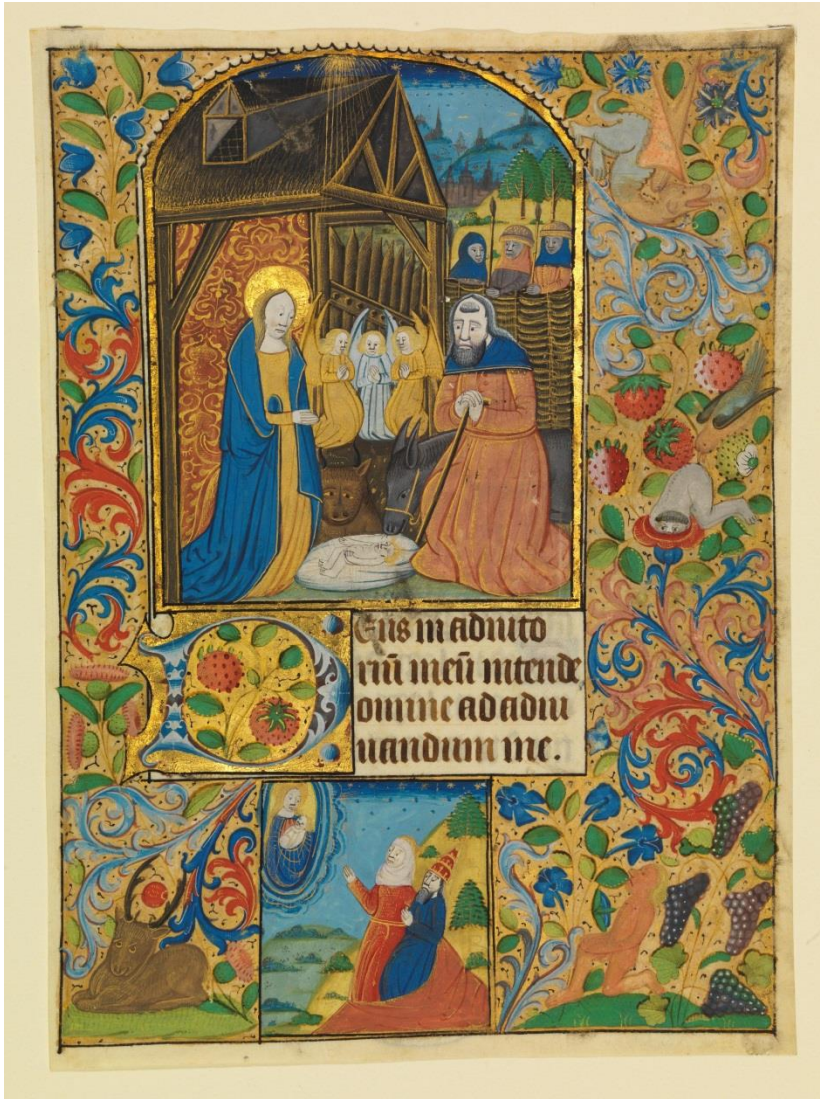 DEus in adiuto
riū meū intende
omine ad adiu
uandum me.